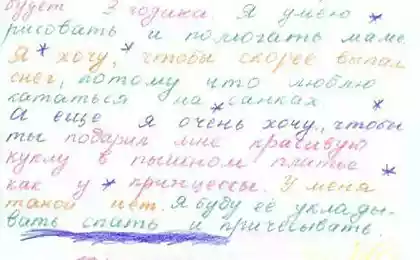 будет 3 годика. Я умею
рисовать и помогать маме.
Я хочу, чтобы скорее выпал
снег, потому что люблю
кататься на санках.
А еще я очень хочу, чтобы
ты подарил мне красивую
куклу в пышном платье
как у принцессы. У меня
такой нет. Я буду её уклады-
вать спать и причесывать.